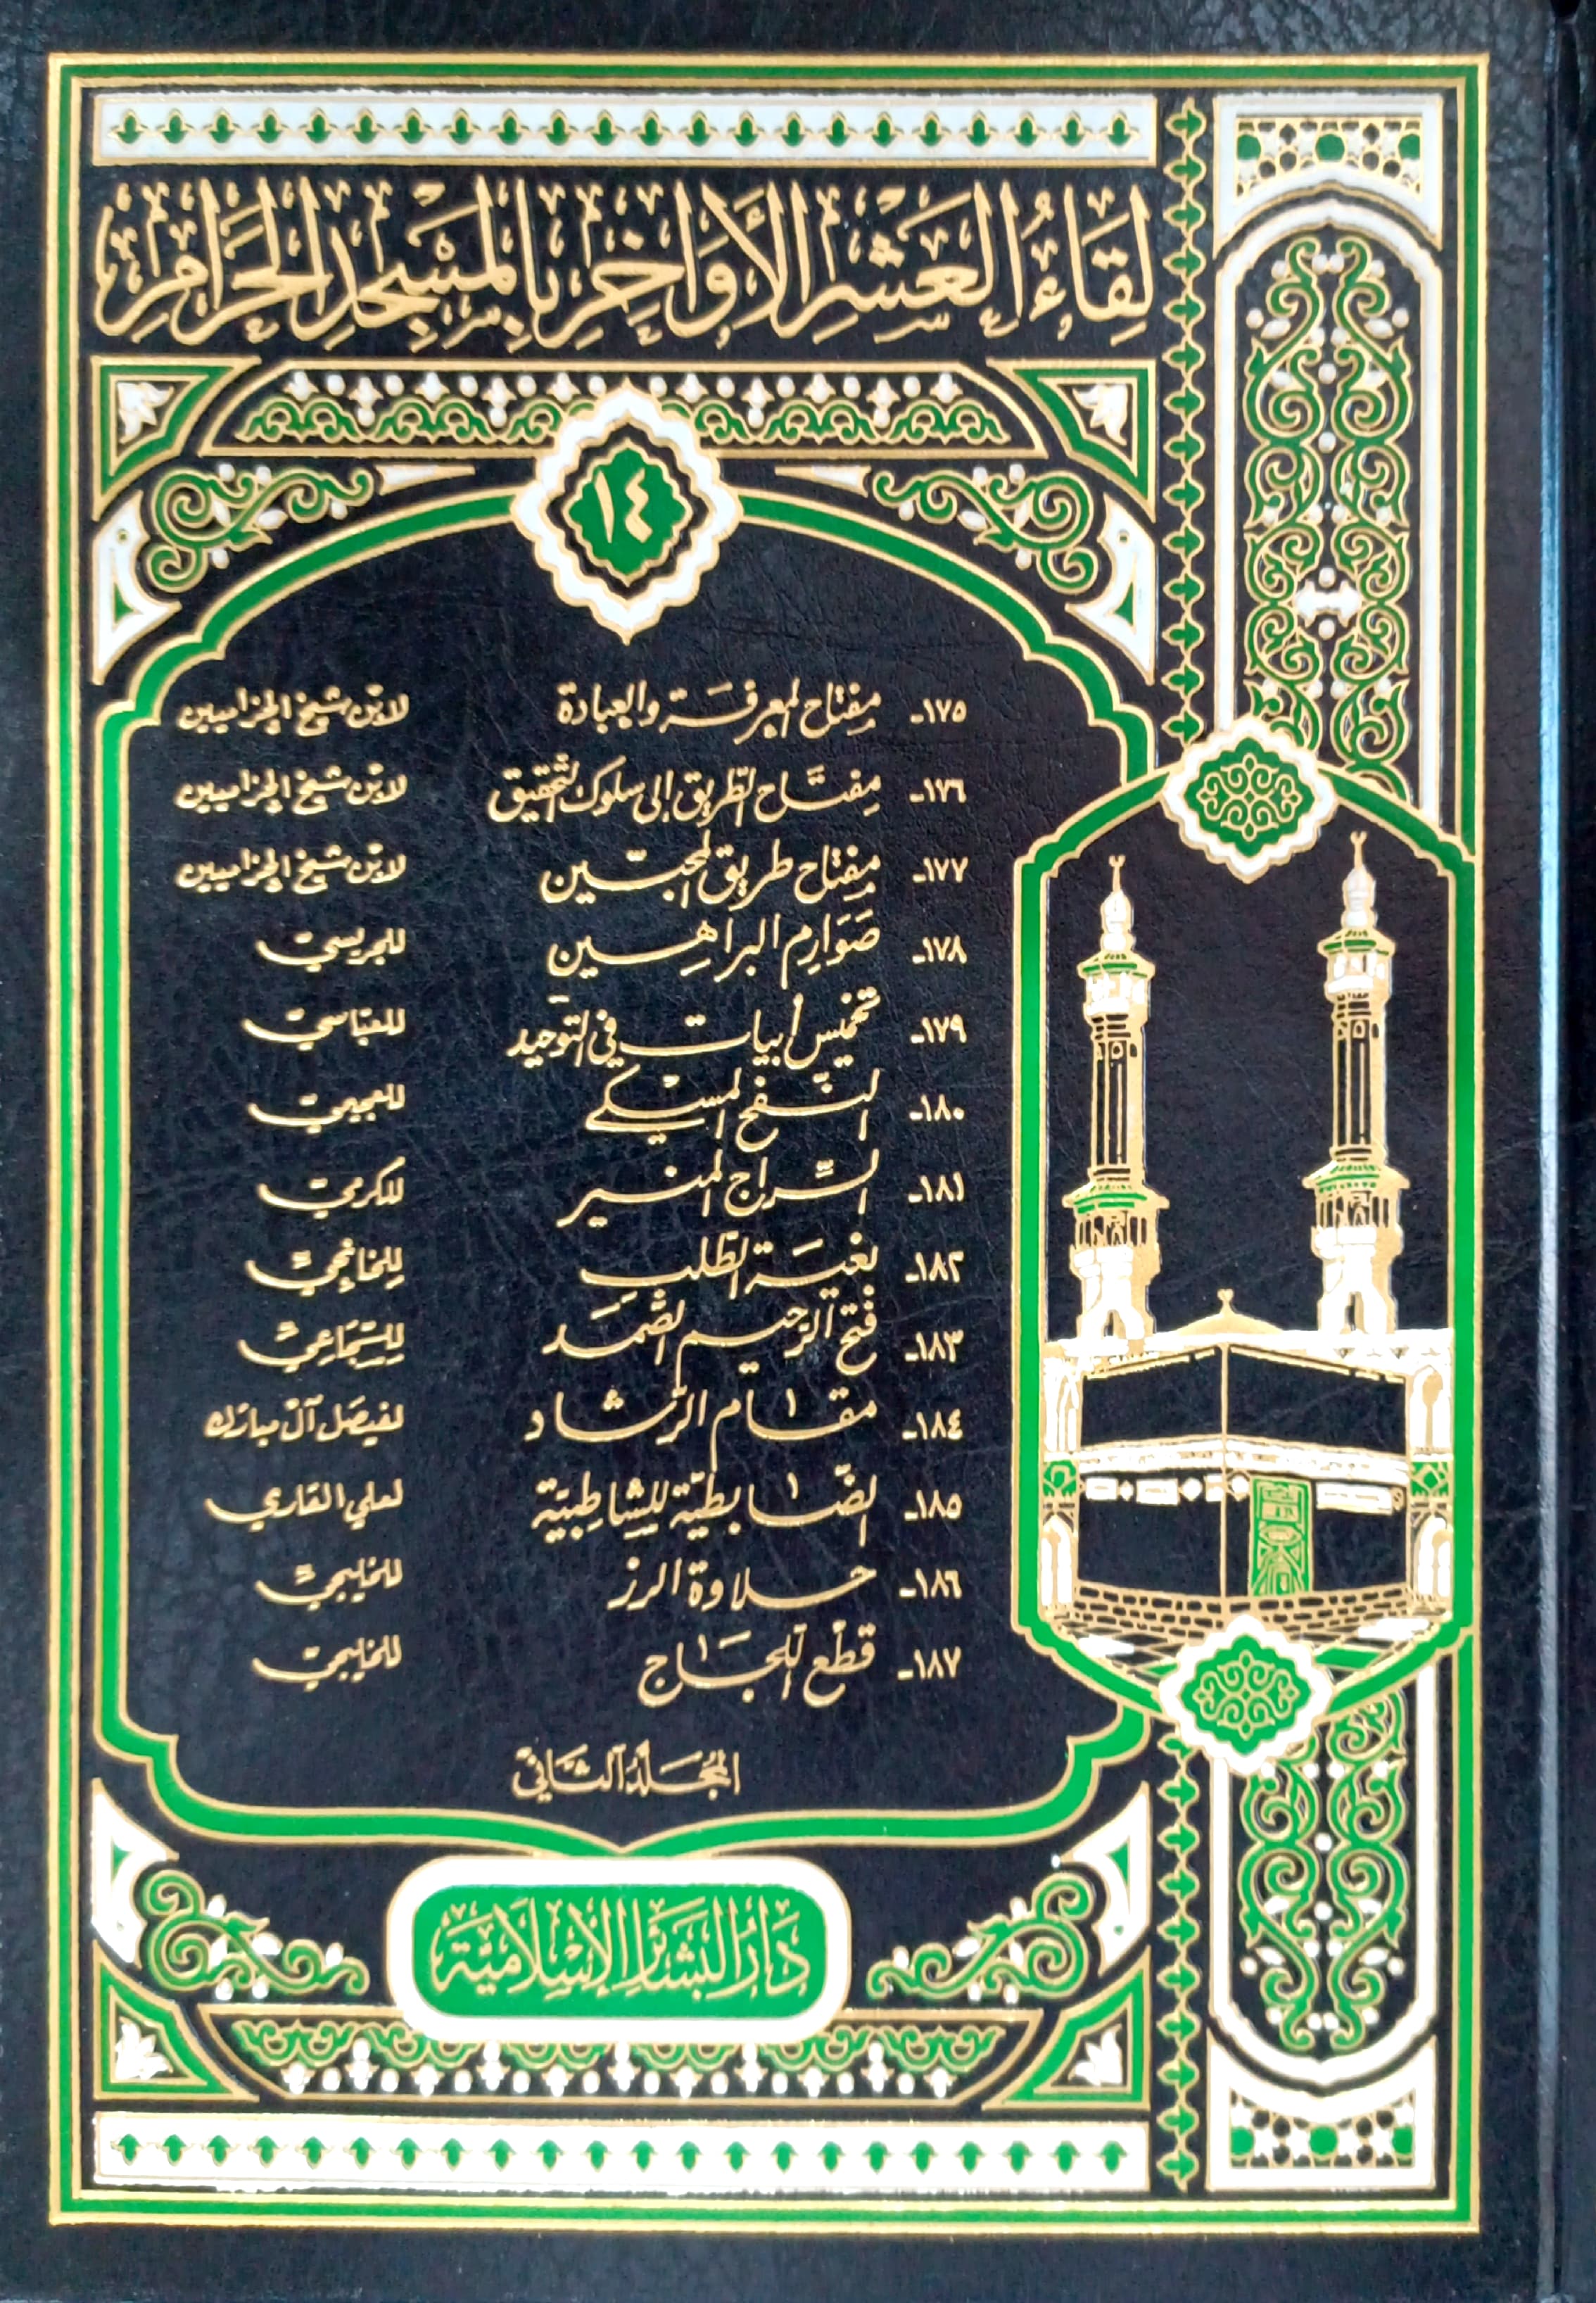 لِقَاءُ العَشْرِ الأَوَاخِرِ بِالمَسْجِدِ الحَرَامِ
١٤
١٧٥- مفتاح المعرفة والعبادة لابن شيخ الحزاميين
١٧٦- مفتاح الطريق إلى سلوك التحقيق لابن شيخ الحزاميين
١٧٧- مفتاح طريق المحبّين لابن شيخ الحزاميين
١٧٨- صَوَارِم البراهين للبريسيّ
١٧٩- تخميس أبيات في التوحيد للعبّاسيّ
١٨٠- النّفح المسكي للعجيميّ
١٨١- السِّراج المنير للكرميّ
١٨٢- بغية الطَّلب للخانجيّ
١٨٣- فتح الرَّحيم الصَّمد للسِّجَاعيّ
١٨٤- مقام الرَّشاد لفيصَل آل مبارك
١٨٥- الضّابطيّة للشاطِبيّة لعلي القاري
١٨٦- حلاوة الرز للخليجيّ
١٨٧- قطع اللَّجاج للخليجيّ
المُجَلَّدُ الثَّاني
دَارُ البَشَائِرِ الإِسْلَامِيَّة